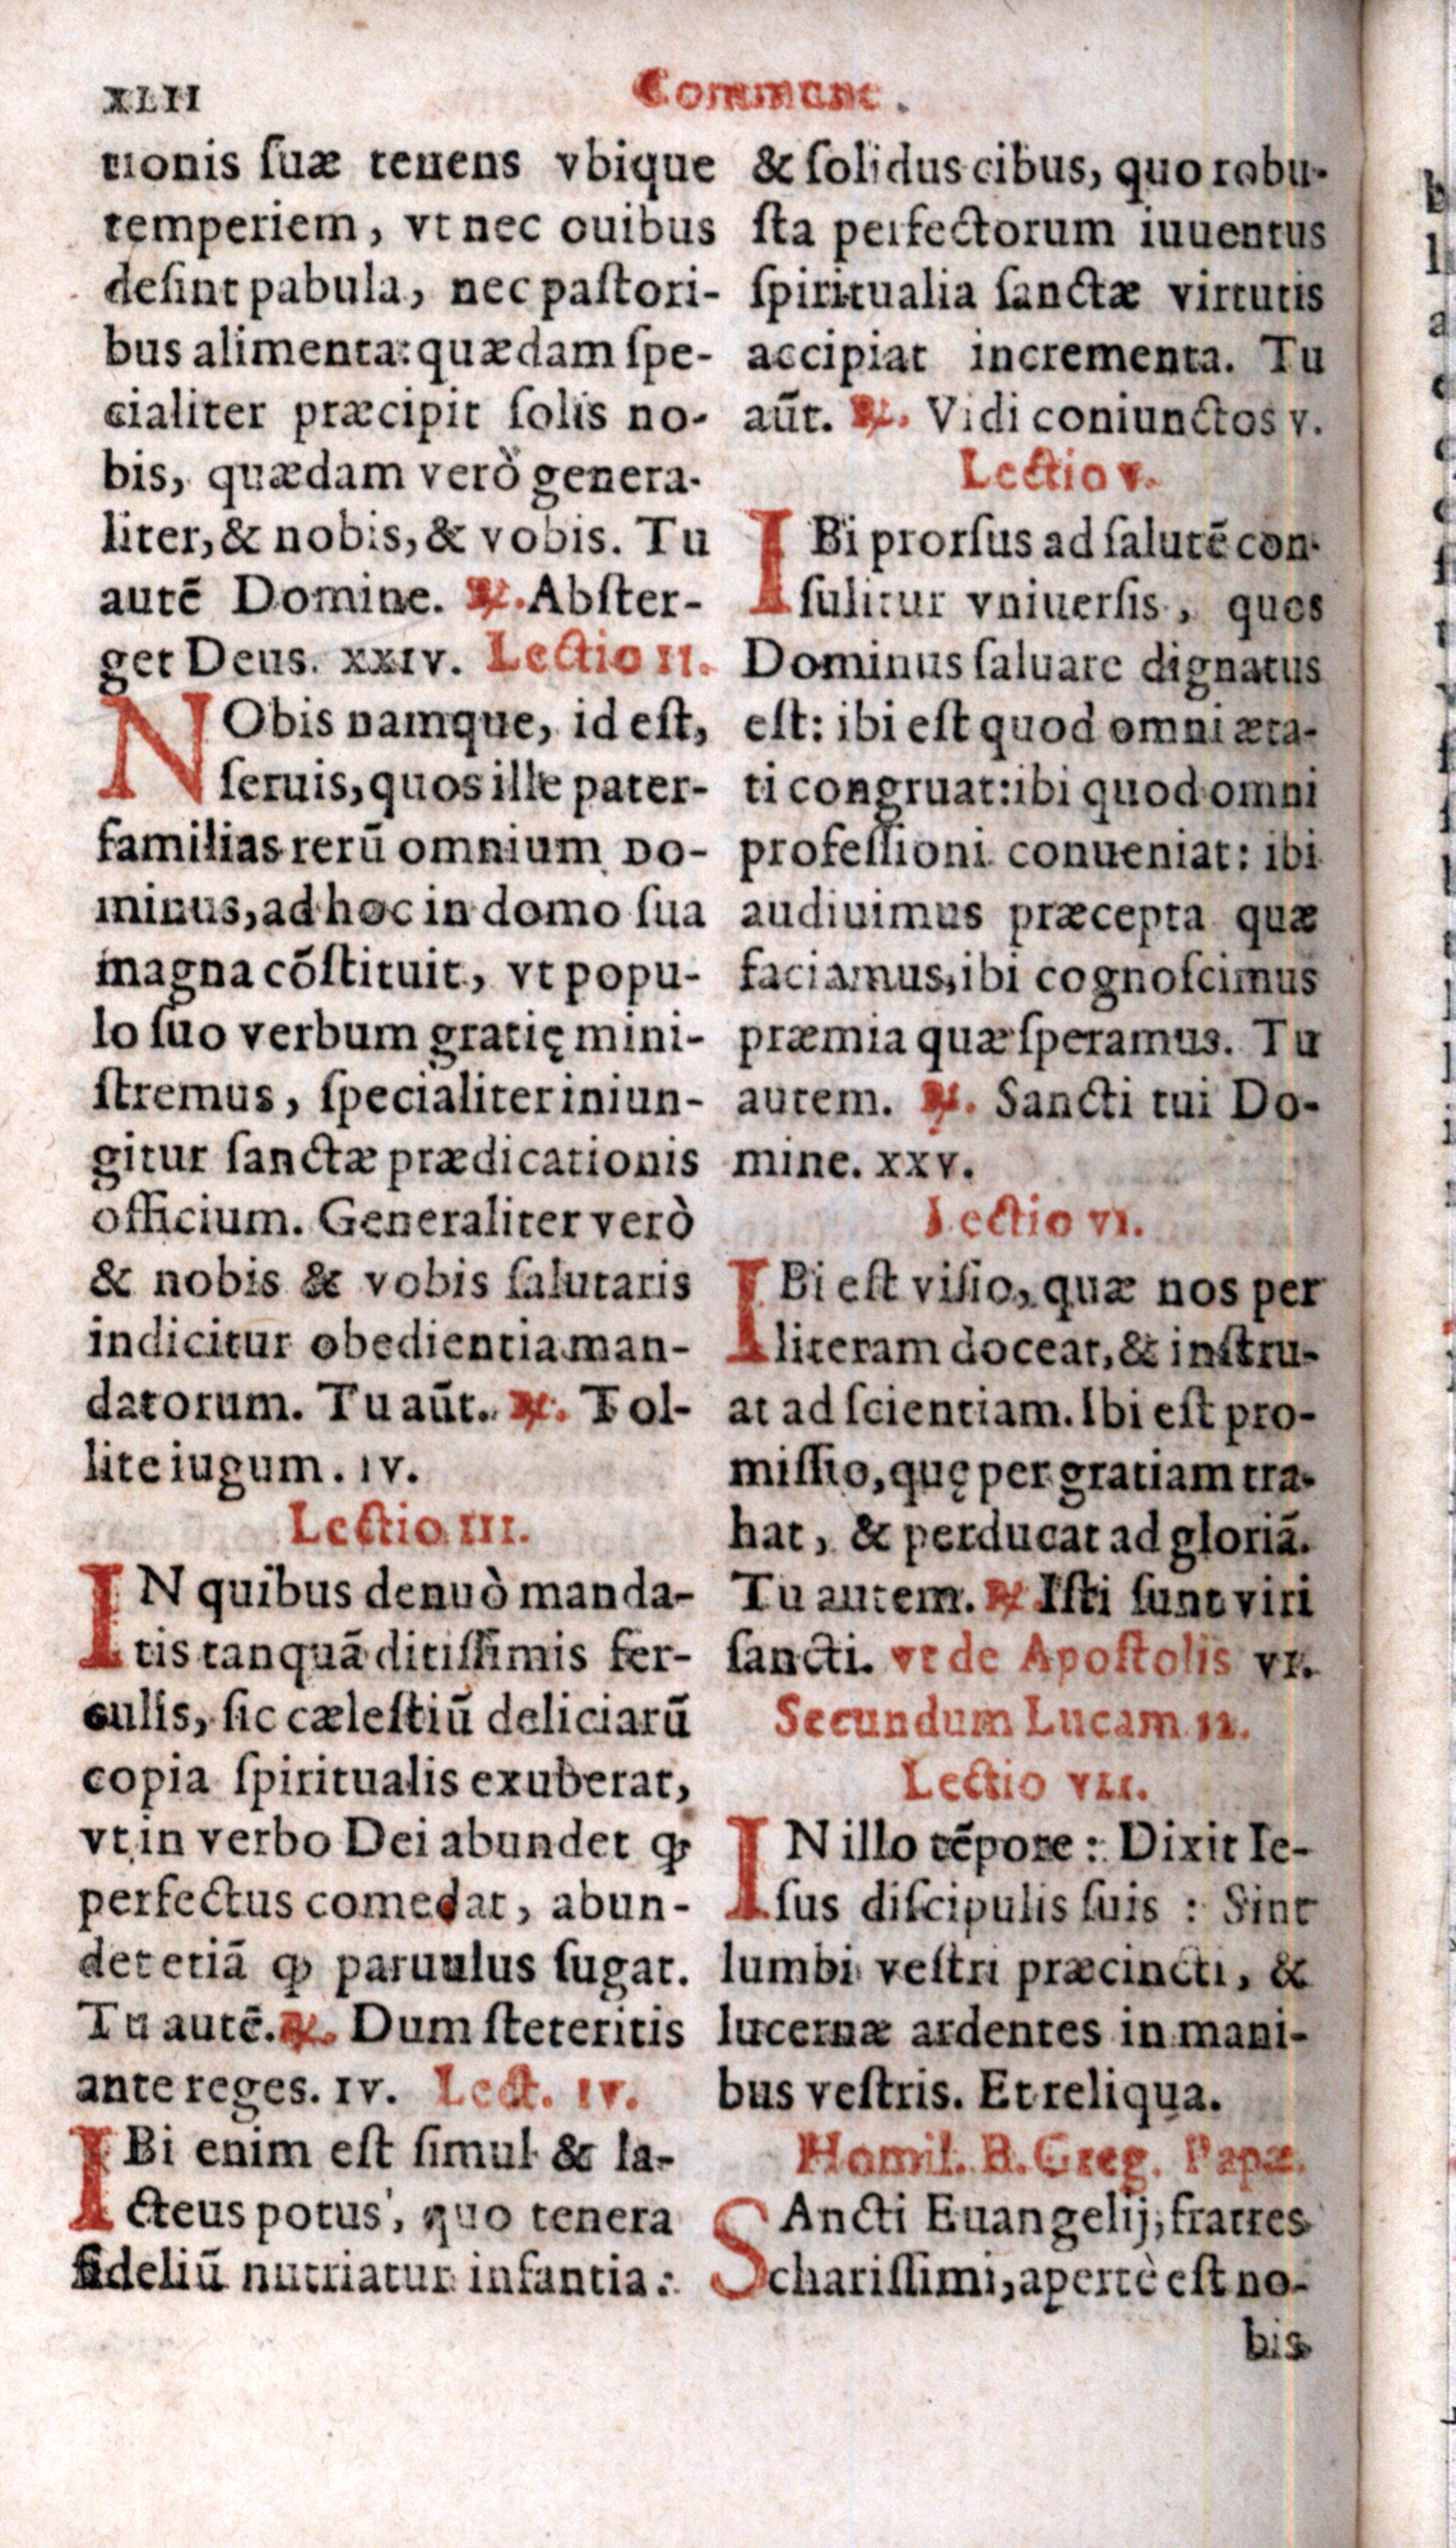 XLII
Commune.
tionis ſuæ tenens vbique
temperiem, vt nec ouibus
deſint pabula, nec paſtori-
bus alimenta: quædam ſpe-
cialiter præcipit ſolis no-
bis, quædam verò genera-
liter, & nobis, & vobis. Tu
autē Domine. ℟. Abſter-
get Deus. xxiv. Lectio II.
NObis namque, id eſt,
ſeruis, quos ille pater-
familias rerū omnium Do-
minus, ad hoc in domo ſua
magna cōſtituit, vt popu-
lo ſuo verbum gratię mini-
ſtremus, ſpecialiter iniun-
gitur ſanctæ prædicationis
officium. Generaliter verò
& nobis & vobis ſalutaris
indicitur obedientia man-
datorum. Tu aūt. ℟. Tol-
lite iugum. IV.
Lectio III.
IN quibus denuò manda-
tis tanquā ditiſſimis fer-
culis, ſic cæleſtiū deliciarū
copia ſpiritualis exuberat,
vt in verbo Dei abundet ꝙ
perfectus comedat, abun-
det etiā ꝙ paruulus ſugat.
Tu autē. ℟. Dum ſteteritis
ante reges. IV. Lect. IV.
IBi enim eſt ſimul & la-
cteus potus, quo tenera
fideliū nutriatur infantia:
& ſolidus cibus, quo robu-
ſta perfectorum iuuentus
ſpiritualia ſanctæ virtutis
accipiat incrementa. Tu
aūt. ℟. Vidi coniunctos v.
Lectio v.
IBi prorſus ad ſalutē con-
ſulitur vniuerſis, quos
Dominus ſaluare dignatus
eſt: ibi eſt quod omni æta-
ti congruat: ibi quod omni
profeſſioni conueniat: ibi
audiuimus præcepta quæ
faciamus, ibi cognoſcimus
præmia quæ ſperamus. Tu
autem. ℟. Sancti tui Do-
mine. xxv.
Lectio VI.
IBi eſt viſio, quæ nos per
literam doceat, & inſtru-
at ad ſcientiam. Ibi eſt pro-
miſſio, quę per gratiam tra-
hat, & perducat ad gloriā.
Tu autem. ℟ Iſti ſunt viri
ſancti. vt de Apoſtolis VI.
Secundum Lucam 12.
Lectio VII.
IN illo tēpore: Dixit Ie-
ſus diſcipulis ſuis: Sint
lumbi veſtri præcincti, &
lucernæ ardentes in mani-
bus veſtris. Et reliqua.
Homil. B. Greg. Papæ.
SAncti Euangelij, fratres
chariſſimi, apertè eſt no-
bis